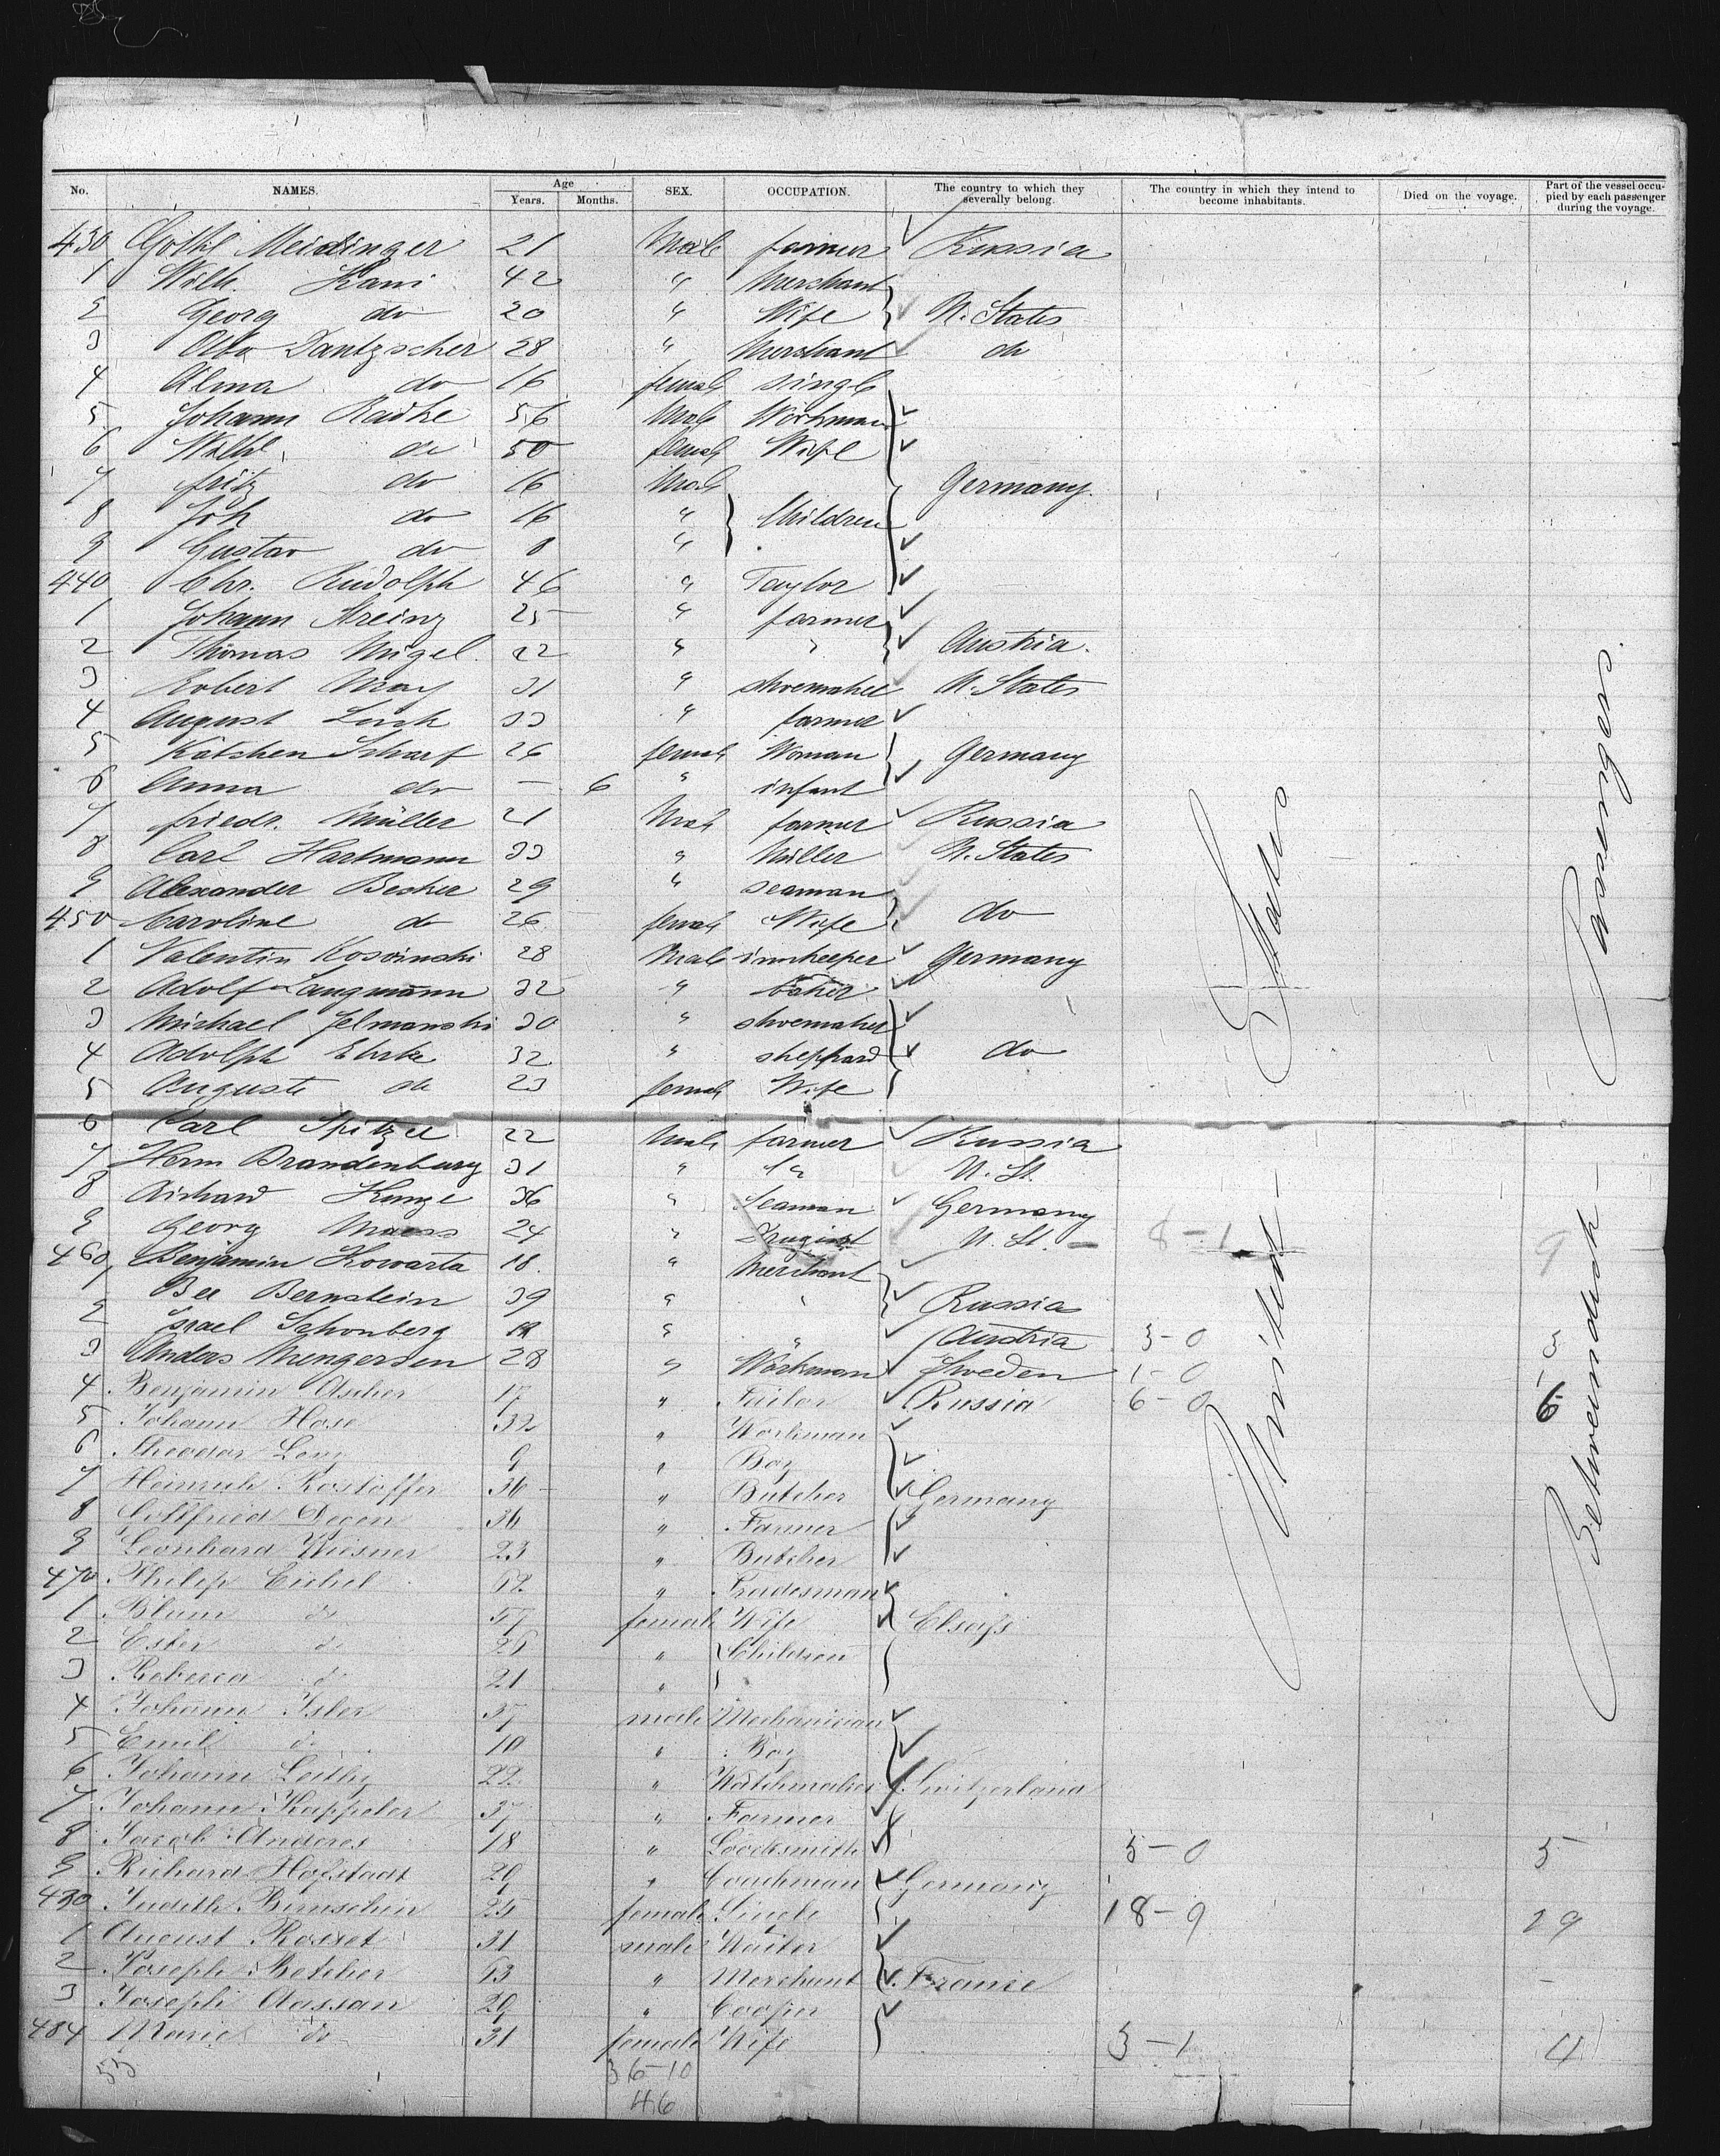 No. NAMES. Age Years. Months. SEX. OCCUPATION. The country to which they severally belong. The country in which they intend to become inhabitants. Died on the voyage. Part of the vessel occupied by each passenger during the voyage.
430 Gottl Meidinger 21 Male farmer Russia
1 Wilh. Kani 42 " Merchant
2 Georg do 20 " Wife U. States
3 Otto Dantzscher 28 " Merchant do
4 Alma do 16 female single
5 Johann Radke 56 Male Workman
6 Wilhl. do 50 female Wife
7 fritz do 16 Male Germany.
8 Joh do 16 " Children
9 Gustav do 8 "
440 Chr. Rudolph 46 " Taylor
1 Johann Streinz 25 " farmer
2 Thomas Migel 22 " " Austria.
3 Robert May 31 " shoemaker U. States
4 August Linck 33 " farmer
5 Kätchen Scharf 26 female Woman Germany
6 Anna do — 6 " infant
7 friedr. Müller 21 Male farmer Russia
8 Carl Hartmann 33 " Miller U. States
9 Alexander Becker 29 " seaman
450 Caroline do 26 female Wife do
1 Valentin Koscinski 28 Male innkeeper Germany
2 Adolf Langmann 32 " baker
3 Michael Jelmanski 30 " shoemaker
4 Adolph Ehrke 32 " sheppard do
5 Auguste do 23 female Wife
6 Carl Spitzer 22 Male farmer Russia
7 Herm Brandenburg 31 " " U. St.
8 Richard Kunze 36 " Seaman Germany
9 Georg Maass 24 " Drugist U. St. — 8-1 9
460 Benjamin Kowarta 18. " Merchant
1 Ber Bernstein 39 " " Russia
2 Israel Schonberg 19 " " Austria 3-0 3
3 Anders Mengersen 28 " Workman Sweden 1-0 1
4 Benjamin Ascher 17 " Tailor Russia 6-0 6
5 Johann Hose 32 " Workman
6 Theodor Levy 9 " Boy
7 Heinrich Kostoffer 36 " Butcher Germany
8 Gottfried Degen 36 " Farmer
9 Leonhard Wiesner 23 " Butcher
470 Philip Eichel 62 " Tradesman
1 Blum do 57 female Wife Elsaſs
2 Ester do 26 " Children
3 Rebecca do 21 "
4 Johann Isler 37 male Mechanician
5 Emil do 10 " Boy
6 Johann Leithy 22 " Watchmaker Switzerland
7 Johann Kappeler 37 " Farmer
8 Jacob Anderes 18 " Locksmith 5-0 5
9 Richard Hofstadt 29 " Coachman Germany
480 Judith Birnschein 25 female Single 18-9 29
1 August Rosset 31 male Waiter
2 Joseph Betcher 63 " Merchant France
3 Joseph Aassan 29 " Cooper
484 Marie do 31 female Wife 3-1 4
55 36-10
46
United States
Betweendeck Passengers.